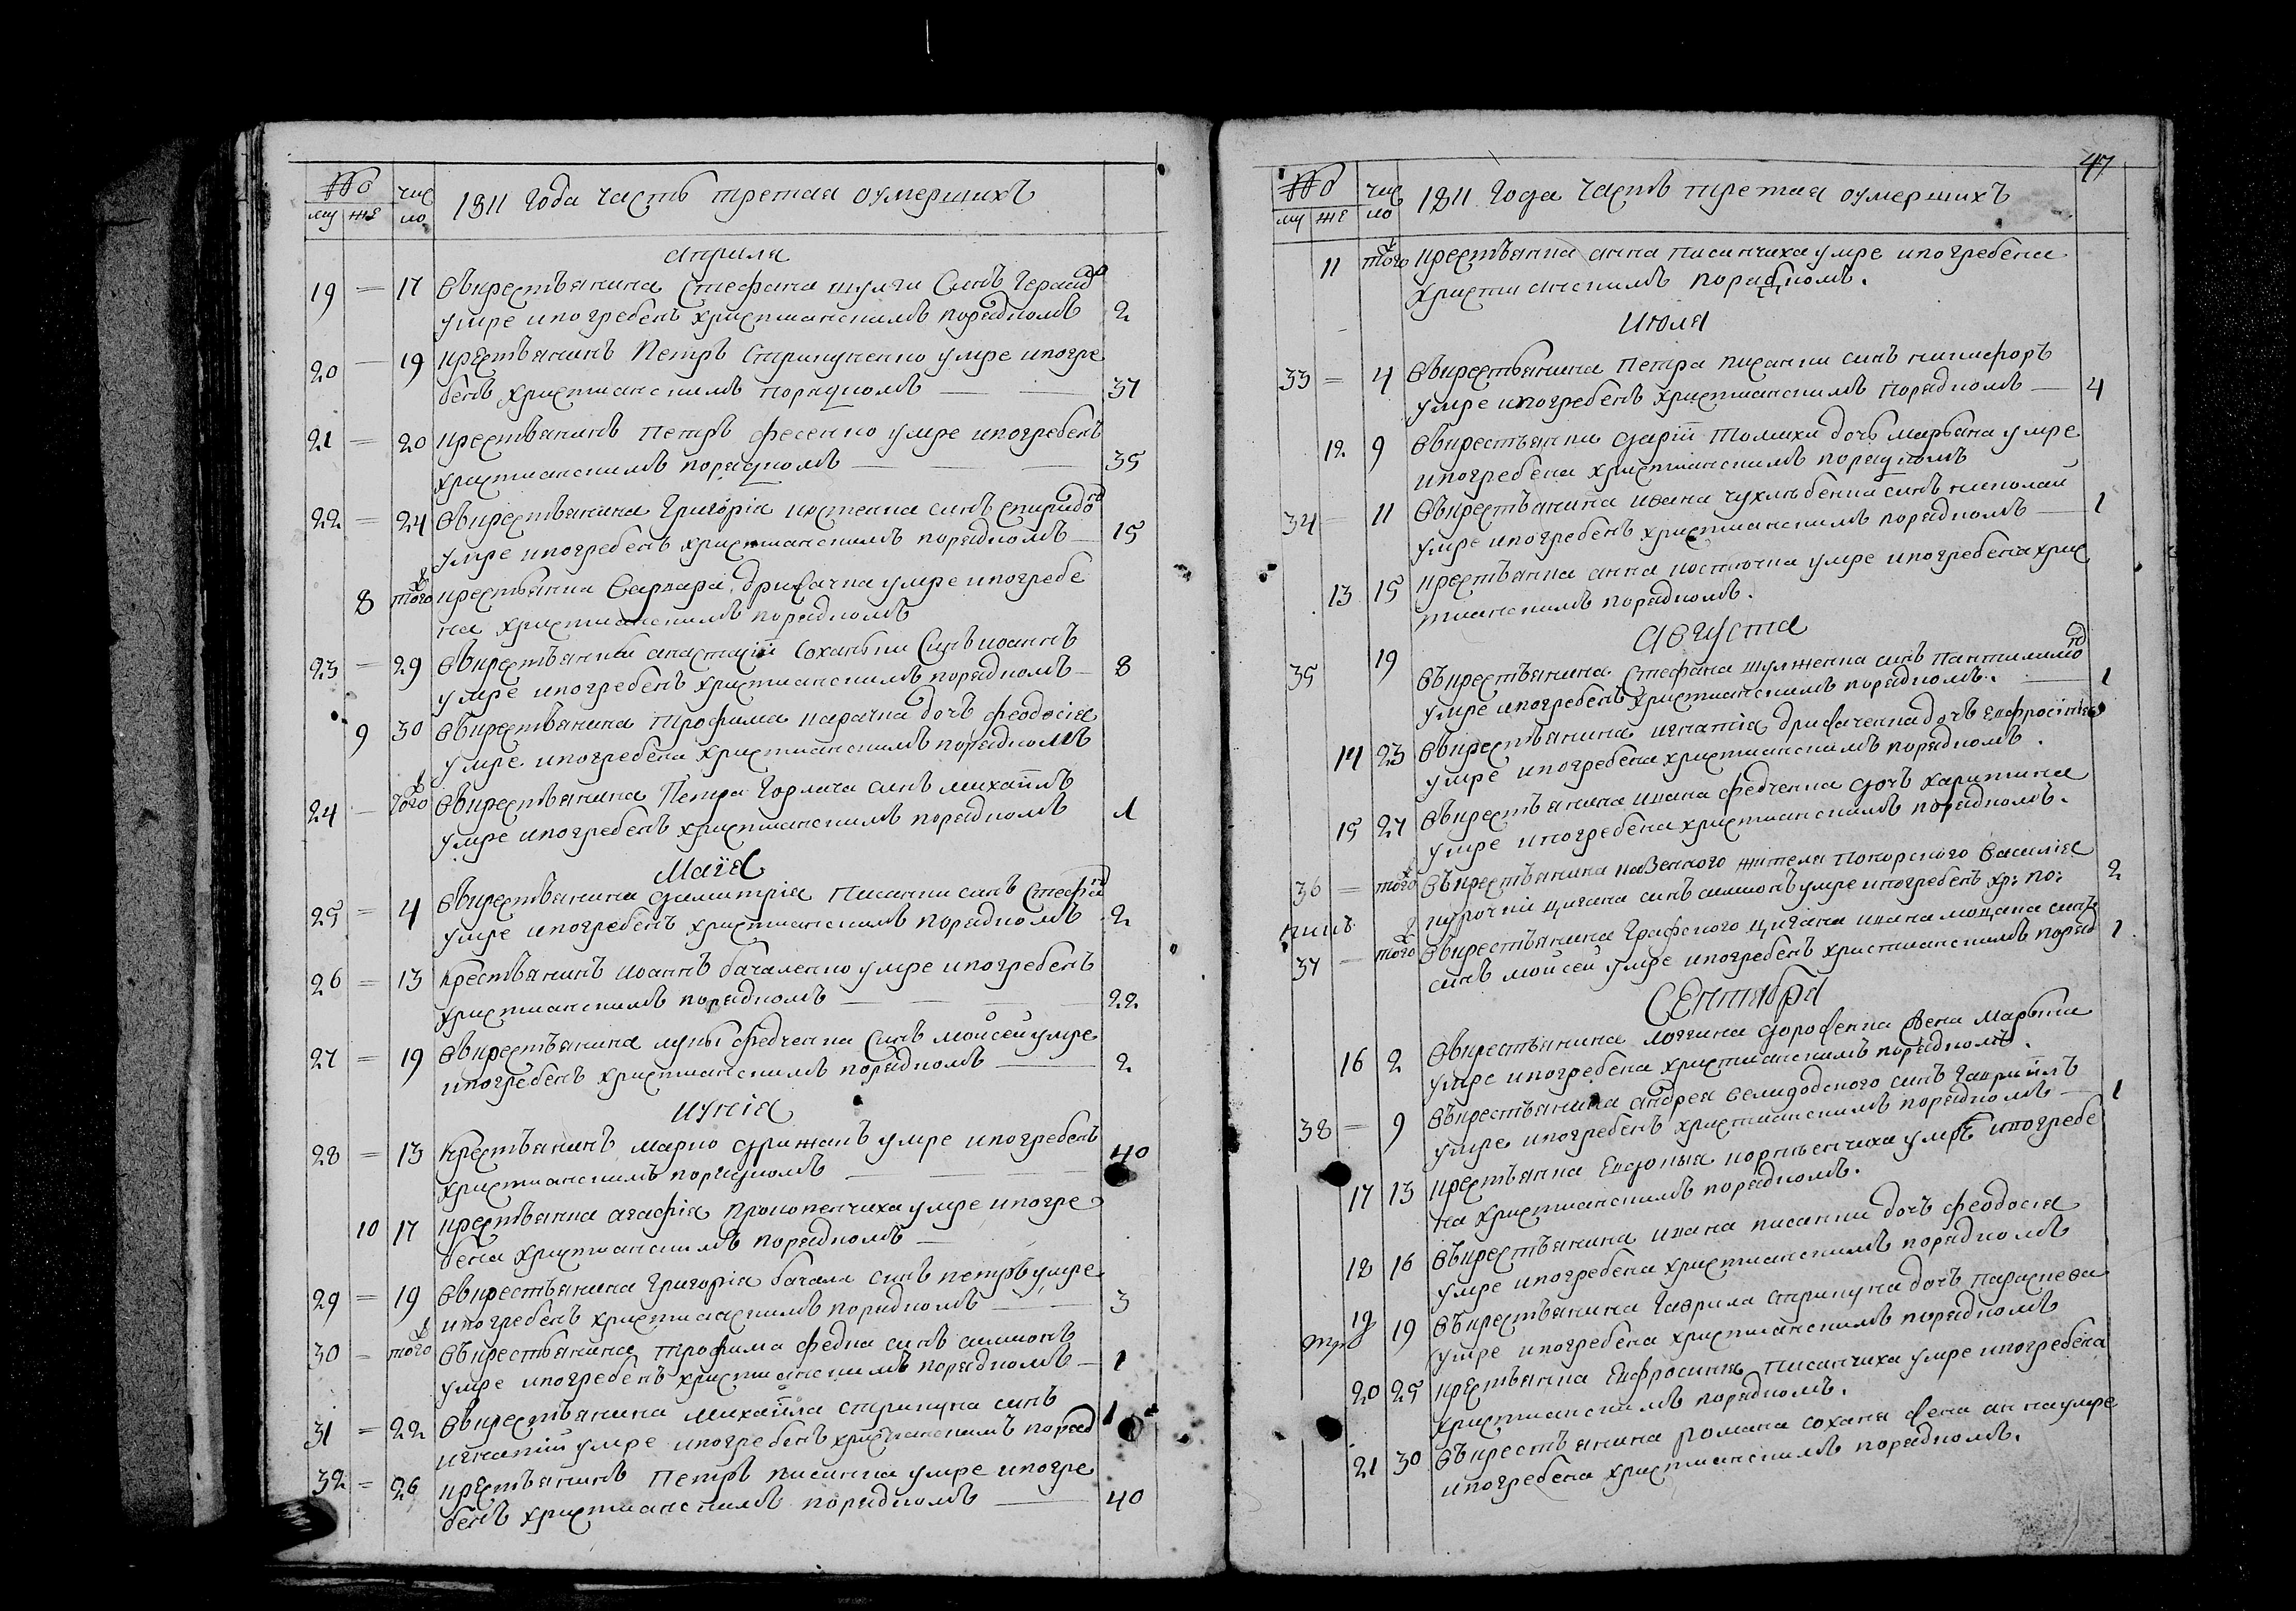 № чис 1811 года часть третая оумершихъ
му же ло
априля
19 — 17 Вкрестьянина Стефана шулги Синъ Герасид
умре ипогребенъ христианскимъ порядкомъ 2
20 — 19 крестьянинъ Петръ Стрикуненко умре ипогре
бенъ христианскимъ порядкомъ — — 37
21 — 20 крестьянинъ Петръ фесенко умре ипогребенъ
христианскимъ порядкомъ — — — 35
22 — 24 Вкрестьянина Григорія костенка синъ спиридо
умре ипогребенъ христианскимъ порядкомъ — 15
8 того крестьянка Варвара умре ипогребе
на христианскимъ порядкомъ
23 — 29 Вкрестьянки анастасіи Соханьки Синъ иоаннъ
умре ипогребенъ христианскимъ порядкомъ — 8
9 30 Вкрестьянина трофима дочъ феодосія
умре ипогребена христианскимъ порядкомъ
24 — того Вкрестьянина Петра Горлача синъ михаилъ
умре ипогребенъ христианскимъ порядкомъ 1
Маія
25 = 4 Вкрестьянина димитрія Писанки синъ Стефа
умре ипогребенъ христианскимъ порядкомъ 2
26 = 13 Крестьянинъ иоаннъ бачаленко умре ипогребенъ
христианскимъ порядкомъ — — — 22
27 = 19 Вкрестьянина луки федченка Синъ мойсей умре
ипогребенъ христианскимъ порядкомъ — 2
иунія
28 = 13 Крестьянинъ марко дрижакъ умре ипогребенъ
христианскимъ порядкомъ — 40
10 17 крестьянка агафія Прокопенчиха умре ипогре
бена христианскимъ порядкомъ —
29 = 19 Вкрестьянина Григорія бачала синъ петръ умре
ипогребенъ христианскимъ порядкомъ — 3
30 = того Вкрестьянина трофима федка синъ симионъ
умре ипогребенъ христианскимъ порядкомъ — 1
31 = 22 Вкрестьянина михаила стрикуна синъ
игнатий умре ипогребенъ христианскимъ поряд 1
32 = 26 крестьянинъ Петръ писанка умре ипогре
бенъ христианскимъ порядкомъ — 40
47
№ чис 1811 года часть третая оумершихъ
му же ло
11 того крестьянка анна писанчиха умре ипогребена
христианскимъ порядкомъ.
Июля
33 = 4 Вкрестьянина Петра писанки синъ никифоръ
умре ипогребенъ христианскимъ порядкомъ — 4
12 9 Вкрестьянки дарій Томихи дочь марьяна умре
ипогребена христианскимъ порядкомъ
34 — 11 Вкрестьянина ивана синъ николай
умре ипогребенъ христианскимъ порядкомъ — 1
13 15 крестьянка анна костючка умре ипогребена хрис
тианскимъ порядкомъ.
Августа
35 19 Въкрестьянина Стефана шулженка синъ Пантилимо
умре ипогребенъ христианскимъ порядкомъ. — 1
14 23 Вкрестьянина игнатія дочъ Евфросінія
умре ипогребена христианскимъ порядкомъ.
15 27 Вкрестьянина ивана федченка дочъ харитина
умре ипогребена христианскимъ порядкомъ.
36 = того Въкрестьянина казенного жителя покорского василія
цигана синъ симионъ умре ипогребенъ хр: по: 2
37 — того Вкрестьянина Графского цигана ивана синъ
синъ мойсей умре ипогребенъ христианскимъ поряд 1
СЕнтября
16 2 Вкрестьянина логвина дорофенка Жена Марьяна
умре ипогребена христианскимъ порядкомъ.
38 = 9 Въкрестьянина андрея велигодского синъ гавриилъ
умре ипогребенъ христианскимъ порядкомъ — 1
17 13 крестьянка Евдокия корнѣенчиха умре ипогребе
на христианскимъ порядкомъ.
18 16 Вкрестьянина ивана писанки дочъ феодосія
умре ипогребена христианскимъ порядкомъ
19 19 Въкрестьянина гаврила стрикуна дочъ параскева
умре ипогребена христианскимъ порядкомъ
20 25 крестьянка Евфросиния Писанчиха умре ипогребена
христианскимъ порядкомъ.
21 30 Въкрестьянина романа соханя жена анна умре
ипогребена христианскимъ порядкомъ.